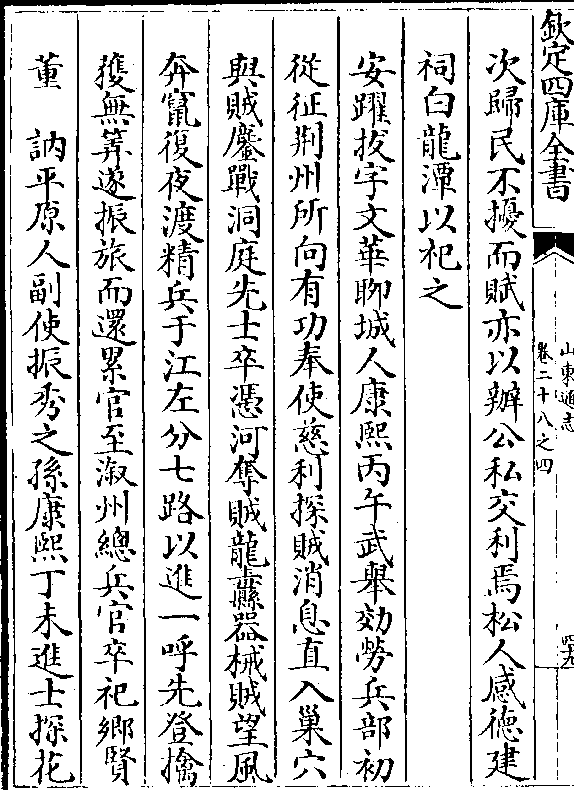 欽定四庫全書
山東通志
卷二十八之四
四九
次歸民不擾而賦亦以辦公私交利焉松人感德建
祠白龍潭以祀之
安躍拔字文華聊城人康熙丙午武舉効勞兵部初
從征荆州所向有功奉使慈利探賊消息直入巢穴
與賊鏖戰洞庭先士卒憑河奪賊龍纛器械賊望風
奔竄復夜渡精兵于江左分七路以進一呼先登擒
獲無筭遂振旅而還累官至溆州總兵官卒祀鄉賢
董　訥平原人副使振秀之孫康熙丁未進士探花